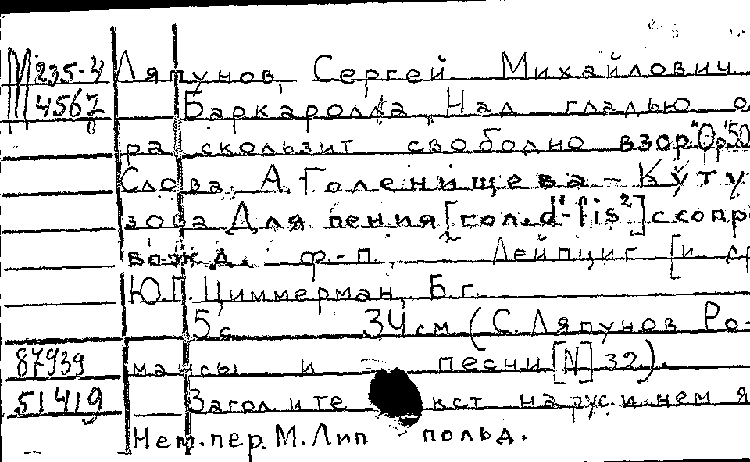 М 235-4 Ляпунов, Сергей Михайлович
4567 Баркаролла. Над гладью о
ра скользит свободно взор "Ор. 50
Слова. А. Голенищева-Куту
зова Для пения [гол. d¹-fis²] с сопр
вожд. ф-п. Лейпциг [и др
Ю.Г. Циммерман, Б.г.
5 с. 34 см (С. Ляпунов Ро-
87939 мансы и песни [N] 32).
51419 Загол. и текст на рус. и нем я
Нем. пер. М. Липпольд.